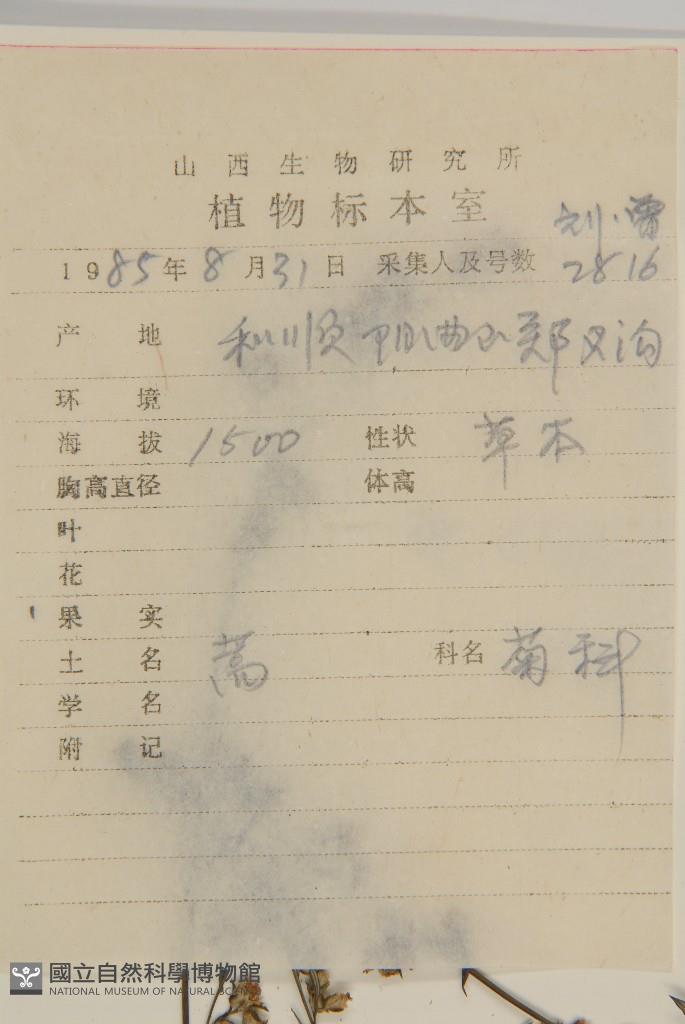 山西生物研究所
植物标本室
刘、曹
1985年8月31日 采集人及号数 2816
产地 和顺 阳曲山
环境
海拔 1500 性状 草本
胸高直径 体高
叶
花
果实
土名 蒿 科名 菊科
学名
附记
國立自然科學博物館
NATIONAL MUSEUM OF NATURAL SCIENCE